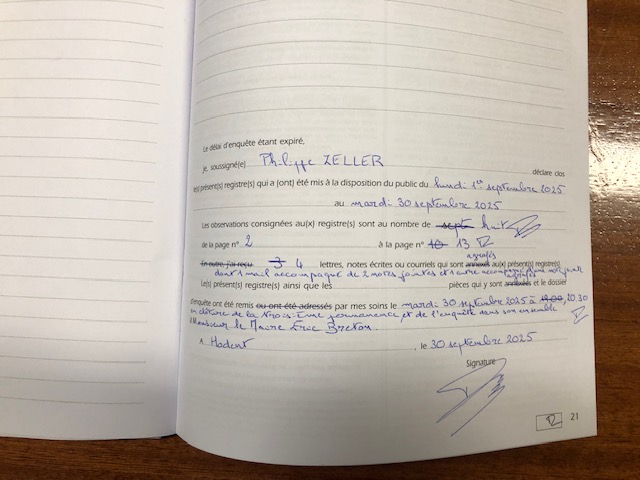 Le délai d'enquête étant expiré,
je, soussigné(e) Philippe ZELLER déclare clos
le(s) présent(s) registre(s) qui a (ont) été mis à la disposition du public du lundi 1er septembre 2025
au mardi 30 septembre 2025
Les observations consignées au(x) registre(s) sont au nombre de sept huit
de la page n° 2 à la page n° 10 13
agrafés
En outre, j'ai reçu 3 4 lettres, notes écrites ou courriels qui sont annexés au(x) présent(s) registre(s)
dont 1 mail accompagné de 2 notes jointes et 1 autre accompagné d'une note jointe
agrafées
Le(s) présent(s) registre(s) ainsi que les pièces qui y sont annexées et le dossier
d'enquête ont été remis ou ont été adressés par mes soins le mardi 30 septembre 2025 à 19.00, 20.30
en clôture de la troisième permanence et de l'enquête dans son ensemble
à Monsieur le Maire Eric Breton.
A Hodent, le 30 septembre 2025
Signature
21